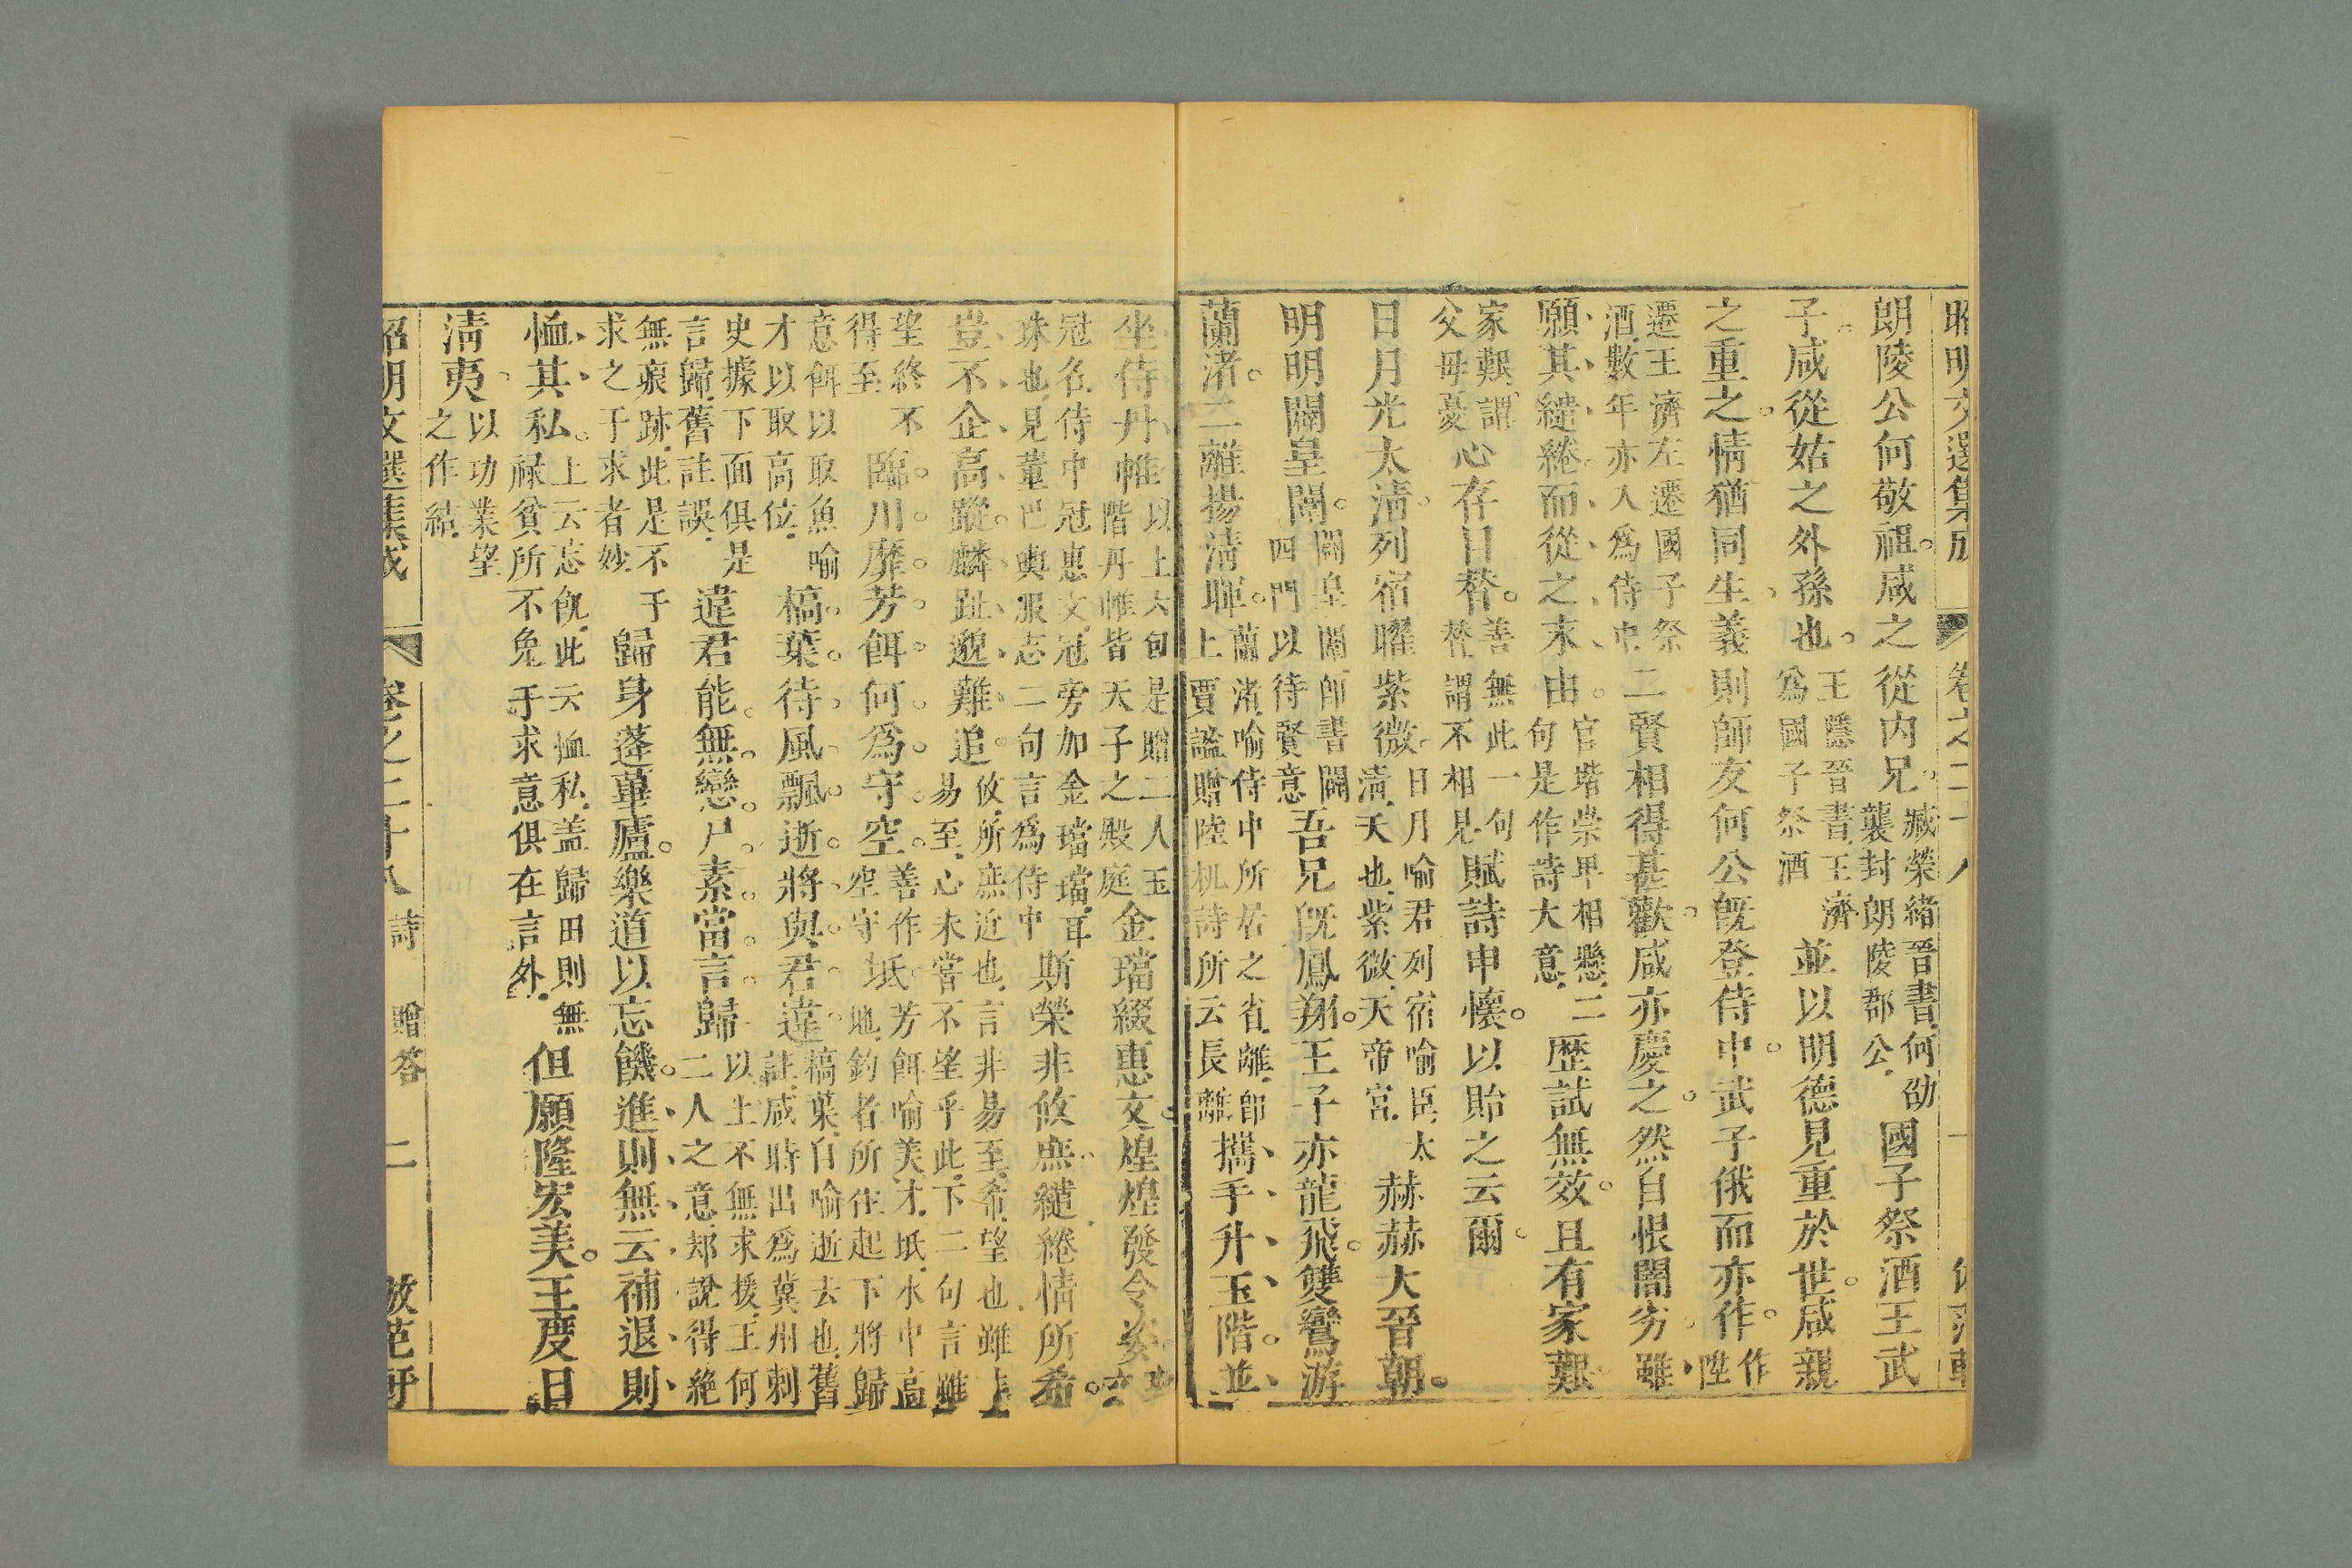 朗陵公何敬祖咸之從内兄臧榮緒晉書何劭襲封朗陵郡公國子祭酒王武
子咸從姑之外孫也王隱晉書王濟爲國子祭酒並以明德見重於世咸親
之重之情猶同生義則師友何公旣登侍中武子俄而亦作作陞
遷王濟左遷國子祭酒數年亦入爲侍中二賢相得甚歡咸亦慶之然自恨闇劣雖
願其繾綣而從之末由官堦崇卑相懸二句是作詩大意歴試無效且有家艱
家艱謂父母憂心存目替善無此一句替謂不相見賦詩申懷以貽之云爾
日月光太淸列宿曜紫微日月喻君列宿喻臣太淸天也紫微天帝宮赫赫大晉朝
明明闢皇闈闢皇闈卽書闢四門以待賢意吾兄旣鳳翔王子亦龍飛雙鸞游
蘭渚二離揚淸暉蘭渚喻侍中所居之省離卽上賈謐贈陸机詩所云長離攜手升玉階並
坐侍丹帷以上六句是贈二人玉階丹帷皆天子之殿庭金璫綴惠文煌煌發令姿
冠名侍中冠惠文冠旁加金璫璫耳珠也見董巴輿服志二句言爲侍中斯榮非攸庶繾綣情所希
豈不企高蹤麟趾邈難追攸所庶近也言非易至希望也雖易至心未嘗不望乎此下二句言雖
望終不得至臨川靡芳餌何爲守空坻善作空守坻芳餌喻美才坻水中高地釣者所住起下將歸
意餌以取魚喻才以取高位槁葉待風飄逝將與君違槁葉自喻逝去也舊註咸時出爲冀州刺
史據下面俱是言歸舊註誤違君能無戀尸素當言歸以上不無求援王何二人之意却說得絶
無痕跡此是不于求之于求者妙歸身蓬蓽廬樂道以忘饑進則無云補退則
恤其私上云忘飢此云恤私盖歸田則無祿貧所不免手求意俱在言外但願隆宏美王度日
淸夷以功業望之作結
昭明文選集成 卷之二十八 詩 贈答 二